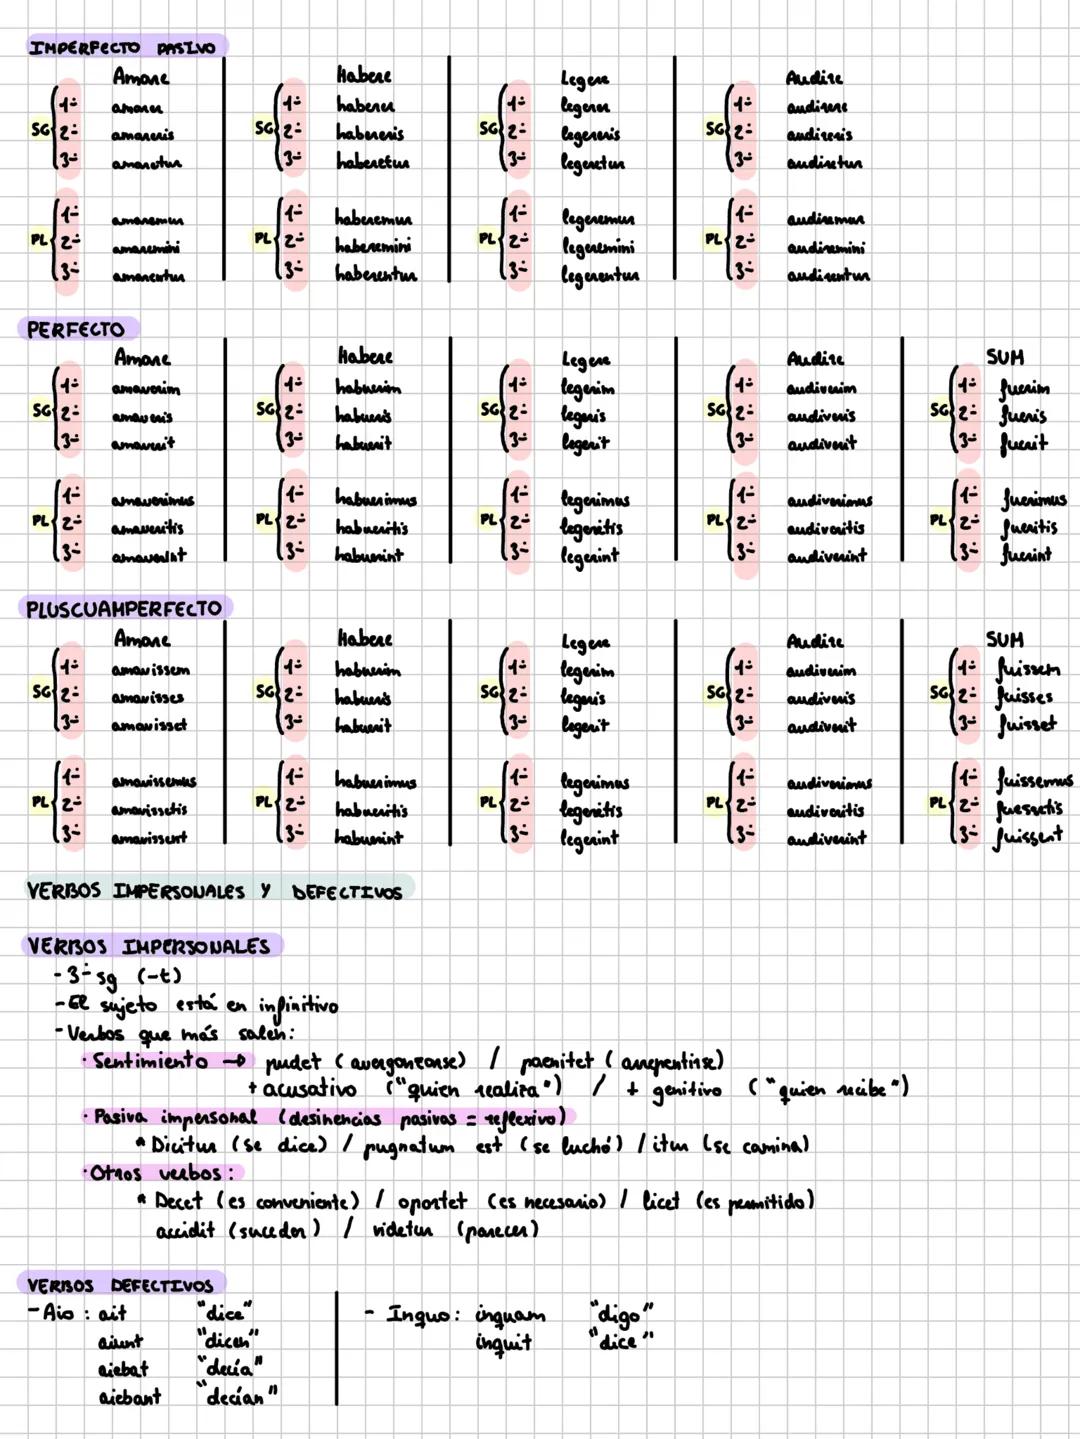 IMPERFECTO PASIVO
Amare Habere Legere Audire
1ª amarer 1ª haberer 1ª legerer 1ª audirere
SG 2ª amareris SG 2ª habereris SG 2ª legereris SG 2ª audireris
3ª amaretur 3ª haberetur 3ª legeretur 3ª audiretur
1ª amaremur 1ª haberemur 1ª legeremur 1ª audiremur
PL 2ª amaremini PL 2ª haberemini PL 2ª legeremini PL 2ª audiremini
3ª amarentur 3ª haberentur 3ª legerentur 3ª audirentur
PERFECTO
Amare Habere Legere Audire SUM
1ª amaverim 1ª habuerim 1ª legerim 1ª audiverim 1ª fuerim
SG 2ª amaveris SG 2ª habueris SG 2ª legeris SG 2ª audiveris SG 2ª fueris
3ª amaverit 3ª habuerit 3ª legerit 3ª audiverit 3ª fuerit
1ª amaverimus 1ª habuerimus 1ª legerimus 1ª audiverimus 1ª fuerimus
PL 2ª amaveritis PL 2ª habueritis PL 2ª legeritis PL 2ª audiveritis PL 2ª fueritis
3ª amaverint 3ª habuerint 3ª legerint 3ª audiverint 3ª fuerint
PLUSCUAMPERFECTO
Amare Habere Legere Audire SUM
1ª amavissem 1ª habuerim 1ª legerim 1ª audiverim 1ª fuissem
SG 2ª amavisses SG 2ª habueris SG 2ª legeris SG 2ª audiveris SG 2ª fuisses
3ª amavisset 3ª habuerit 3ª legerit 3ª audiverit 3ª fuisset
1ª amavissemus 1ª habuerimus 1ª legerimus 1ª audiverimus 1ª fuissemus
PL 2ª amavissetis PL 2ª habueritis PL 2ª legeritis PL 2ª audiveritis PL 2ª fuessetis
3ª amavissent 3ª habuerint 3ª legerint 3ª audiverint 3ª fuissent
VERBOS IMPERSONALES Y DEFECTIVOS
VERBOS IMPERSONALES
- 3ª sg (-t)
- El sujeto está en infinitivo
- Verbos que más salen:
· Sentimiento → pudet (avergonzarse) / paenitet (arrepentirse)
+ acusativo ("quien realiza") / + genitivo ("quien recibe")
· Pasiva impersonal (desinencias pasivas = reflexivo)
* Dicitur (se dice) / pugnatum est (se luchó) / itur (se camina)
· Otros verbos:
* Decet (es conveniente) / oportet (es necesario) / licet (es permitido)
accidit (suceder) / videtur (parecer)
VERBOS DEFECTIVOS
- Aio: ait "dice" - Inquo: inquam "digo"
aiunt "dicen" inquit "dice"
aiebat "decía"
aiebant "decían"